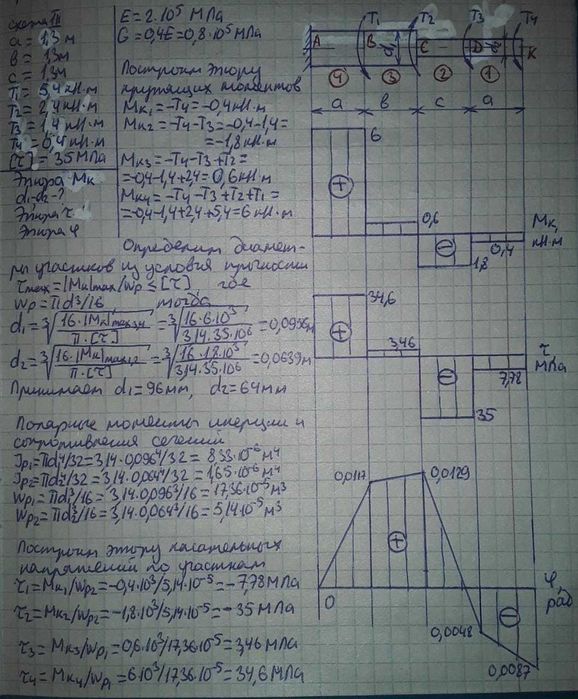 схема III
a = 1,3 м
в = 1,3 м
с = 1,3 м
T₁ = 5,4 кН·м
T₂ = 2,4 кН·м
T₃ = 1,4 кН·м
T₄ = 0,4 кН·м
[τ] = 35 МПа
Эпюра Mк
d₁, d₂-?
Эпюра τ
Эпюра φ
E = 2·10⁵ МПа
G = 0,4E = 0,8·10⁵ МПа
Построим эпюру
крутящих моментов
Mк₁ = -T₄ = -0,4 кН·м
Mк₂ = -T₄-T₃ = -0,4-1,4 =
= -1,8 кН·м
Mк₃ = -T₄-T₃+T₂ =
= -0,4-1,4+2,4 = 0,6 кН·м
Mк₄ = -T₄-T₃+T₂+T₁ =
= -0,4-1,4+2,4+5,4 = 6 кН·м
Определим диамет-
ры участков из условия прочности
τmax = |Mк|max/Wρ ≤ [τ], где
Wρ = πd³/16 тогда
d₁ = ³√(16·|Mк|max3,4 / π·[τ]) = ³√(16·6·10³ / 3,14·35·10⁶) = 0,0956 м
d₂ = ³√(16·|Mк|max1,2 / π·[τ]) = ³√(16·1,8·10³ / 3,14·35·10⁶) = 0,0639 м
Принимаем d₁ = 96 мм, d₂ = 64 мм
Полярные моменты инерции и
сопротивления сечений
Jρ₁ = πd₁⁴/32 = 3,14·0,096⁴/32 = 833·10⁻⁸ м⁴
Jρ₂ = πd₂⁴/32 = 3,14·0,064⁴/32 = 165·10⁻⁸ м⁴
Wρ₁ = πd₁³/16 = 3,14·0,096³/16 = 17,36·10⁻⁵ м³
Wρ₂ = πd₂³/16 = 3,14·0,064³/16 = 5,14·10⁻⁵ м³
Построим эпюру касательных
напряжений по участкам
τ₁ = Mк₁/Wρ₂ = -0,4·10³/5,14·10⁻⁵ = -7,78 МПа
τ₂ = Mк₂/Wρ₂ = -1,8·10³/5,14·10⁻⁵ = -35 МПа
τ₃ = Mк₃/Wρ₁ = 0,6·10³/17,36·10⁻⁵ = 3,46 МПа
τ₄ = Mк₄/Wρ₁ = 6·10³/17,36·10⁻⁵ = 34,6 МПа
T₁ T₂ T₃ T₄
A B C D K
④ ③ ② ①
a в с a
6
+
0,6
Mк,
кН·м
−
0,4
1,8
34,6
+
3,46
τ
МПа
−
7,78
35
0,0117
0,0129
+
0
φ,
рад
−
0,0048
0,0087